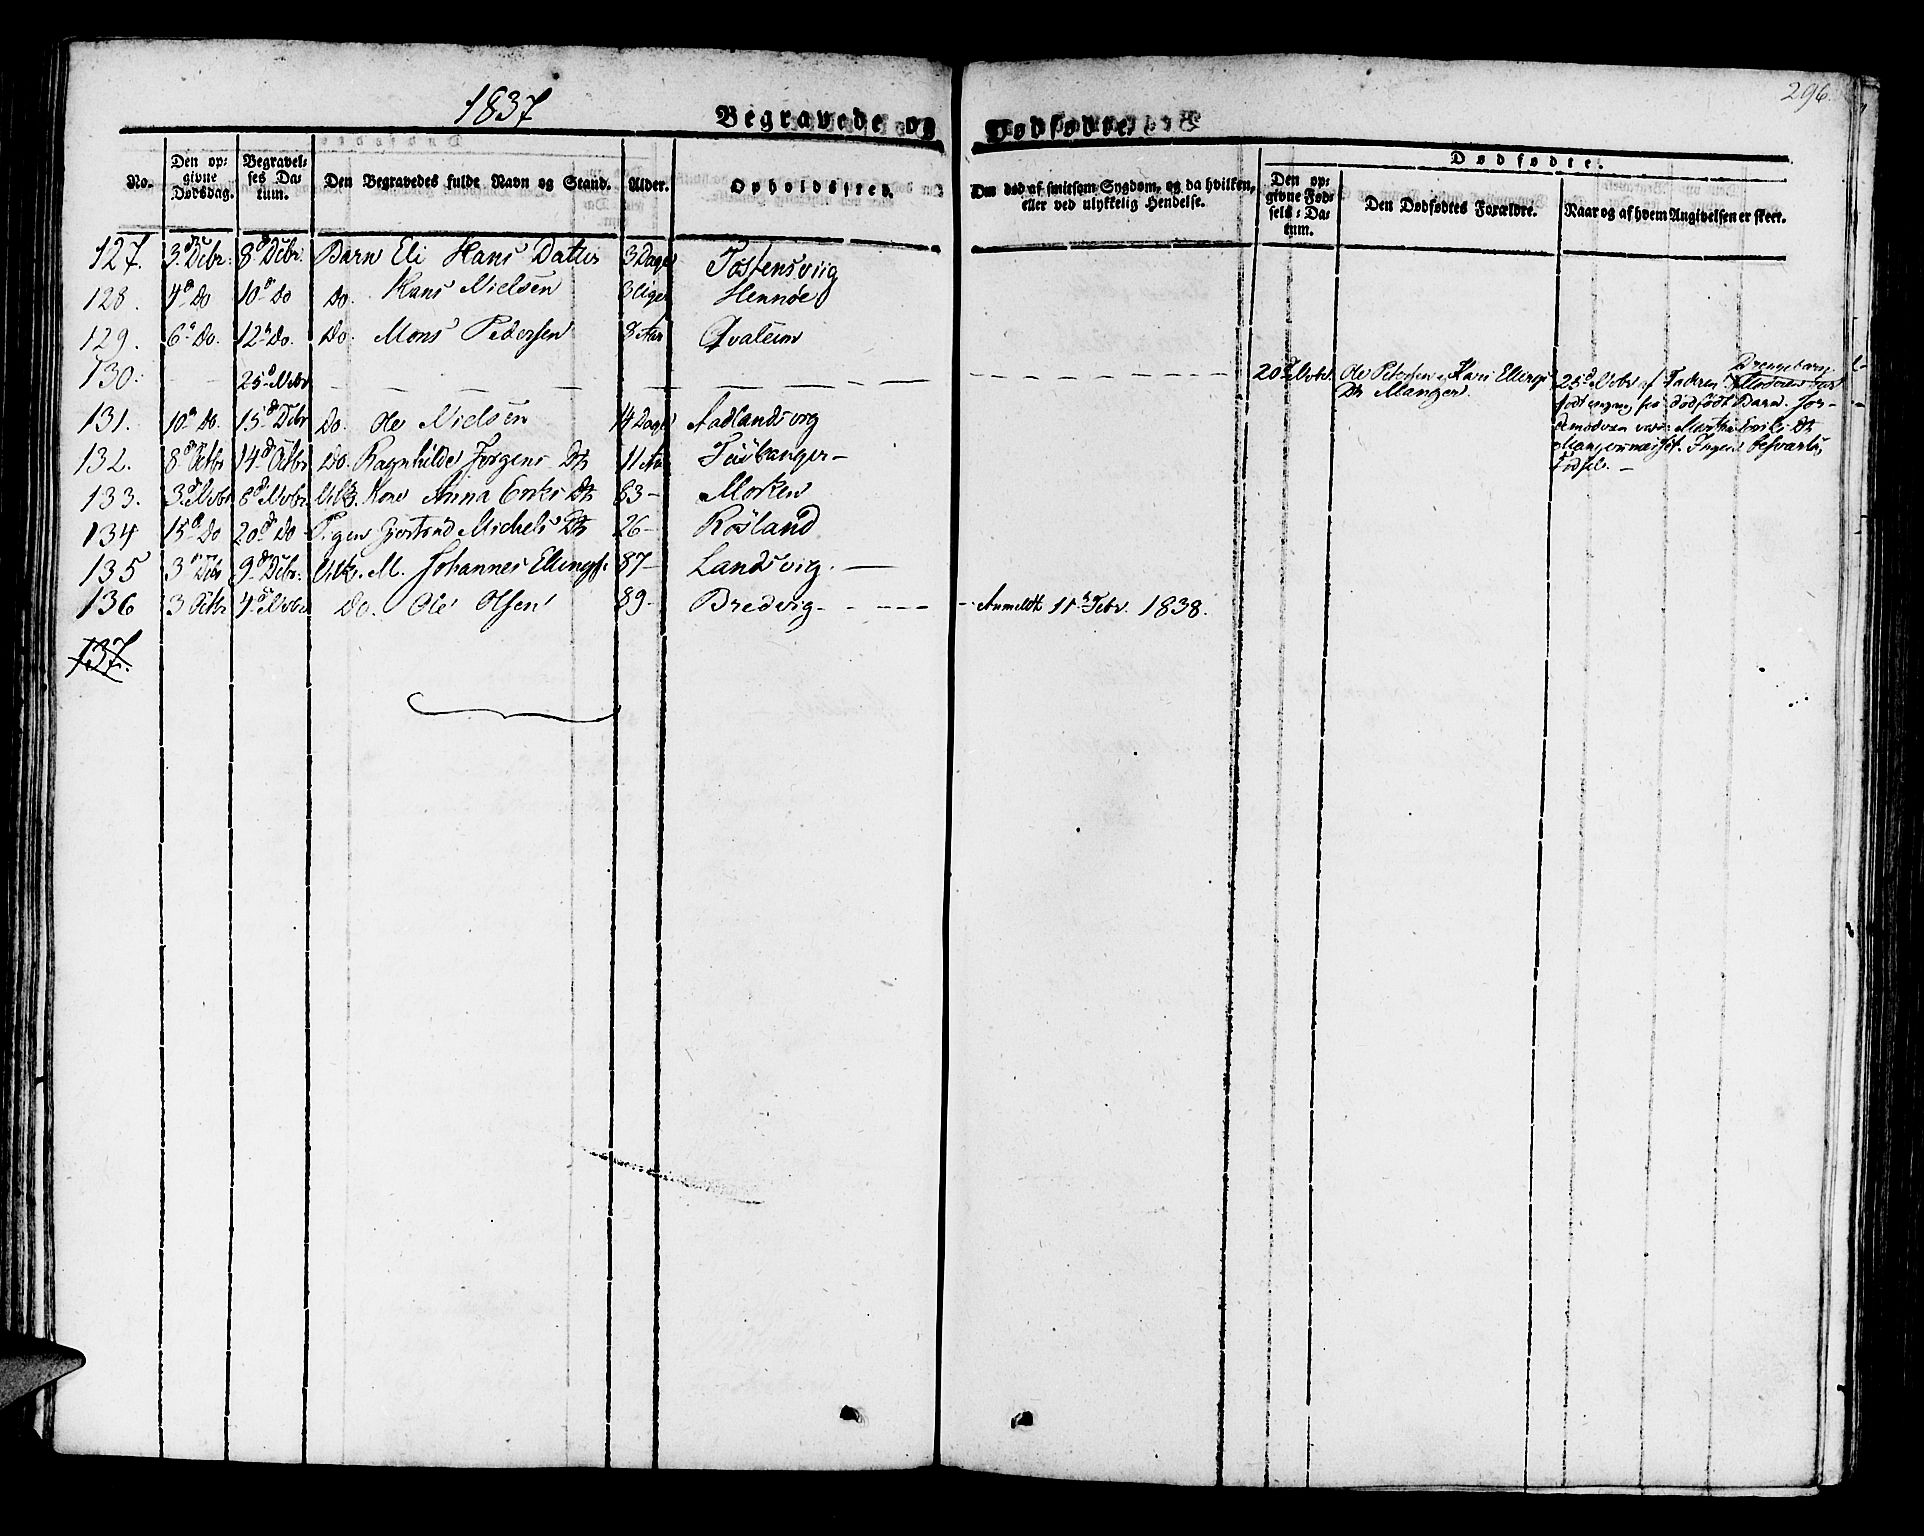 1837
Begravede og Dødfødte.
296.
No.
Den opgivne Dødsdag.
Begravelses Datum.
Den Begravedes fulde Navn og Stand.
Alder.
Opholdssted.
Om død af smitsom Sygdom, og da hvilken, eller ved ulykkelig Hendelse.
Dødfødte.
Den opgivne Fødsels-Datum.
Den Dødfødtes Forældre.
Naar og af hvem Angivelsen er skeet.
127. 3 Debr. 8 Debr. Barn Eli Hans Datter 3 Dage
128. 4 Do 10 Do Do. Hans Nielsen Hennøe
129. 6 Do. 12 Do. Do. Mons Pedersen 3 Aar Qvaleim
130. - - 25 Novbr - - - 20 Novbr. Ole Petersen Kari Ellings Dtr Manger. 25 Novbr af Faderen
født engang før dødfødt Barn. Jordemoderen var Marthe Eriks Dtr
Fødsel. -
131. 10 Do. 15 Debr Do Ole Nielsen 14 Dage Aadlandsvig
132. 8 Octbr 14 Octbr Do. Ragnhilde Jørgens Dtr 11 Aar
133. 3 Novbr 8 Novbr. Kone Anna Eriks Dtr 83 - Morken
134 15 Do 20 Do Pigen Giertrud Michels Dtr 26 - Rosland
135 3 Debr 9 Debr. M. Johannes Ellings. 87 - Landsvig. -
136 3 Octbr 4 Novbr Do. Ole Olsen 89 - Bredvig - - - - Anmeldt 11 Febr. 1838.
137.